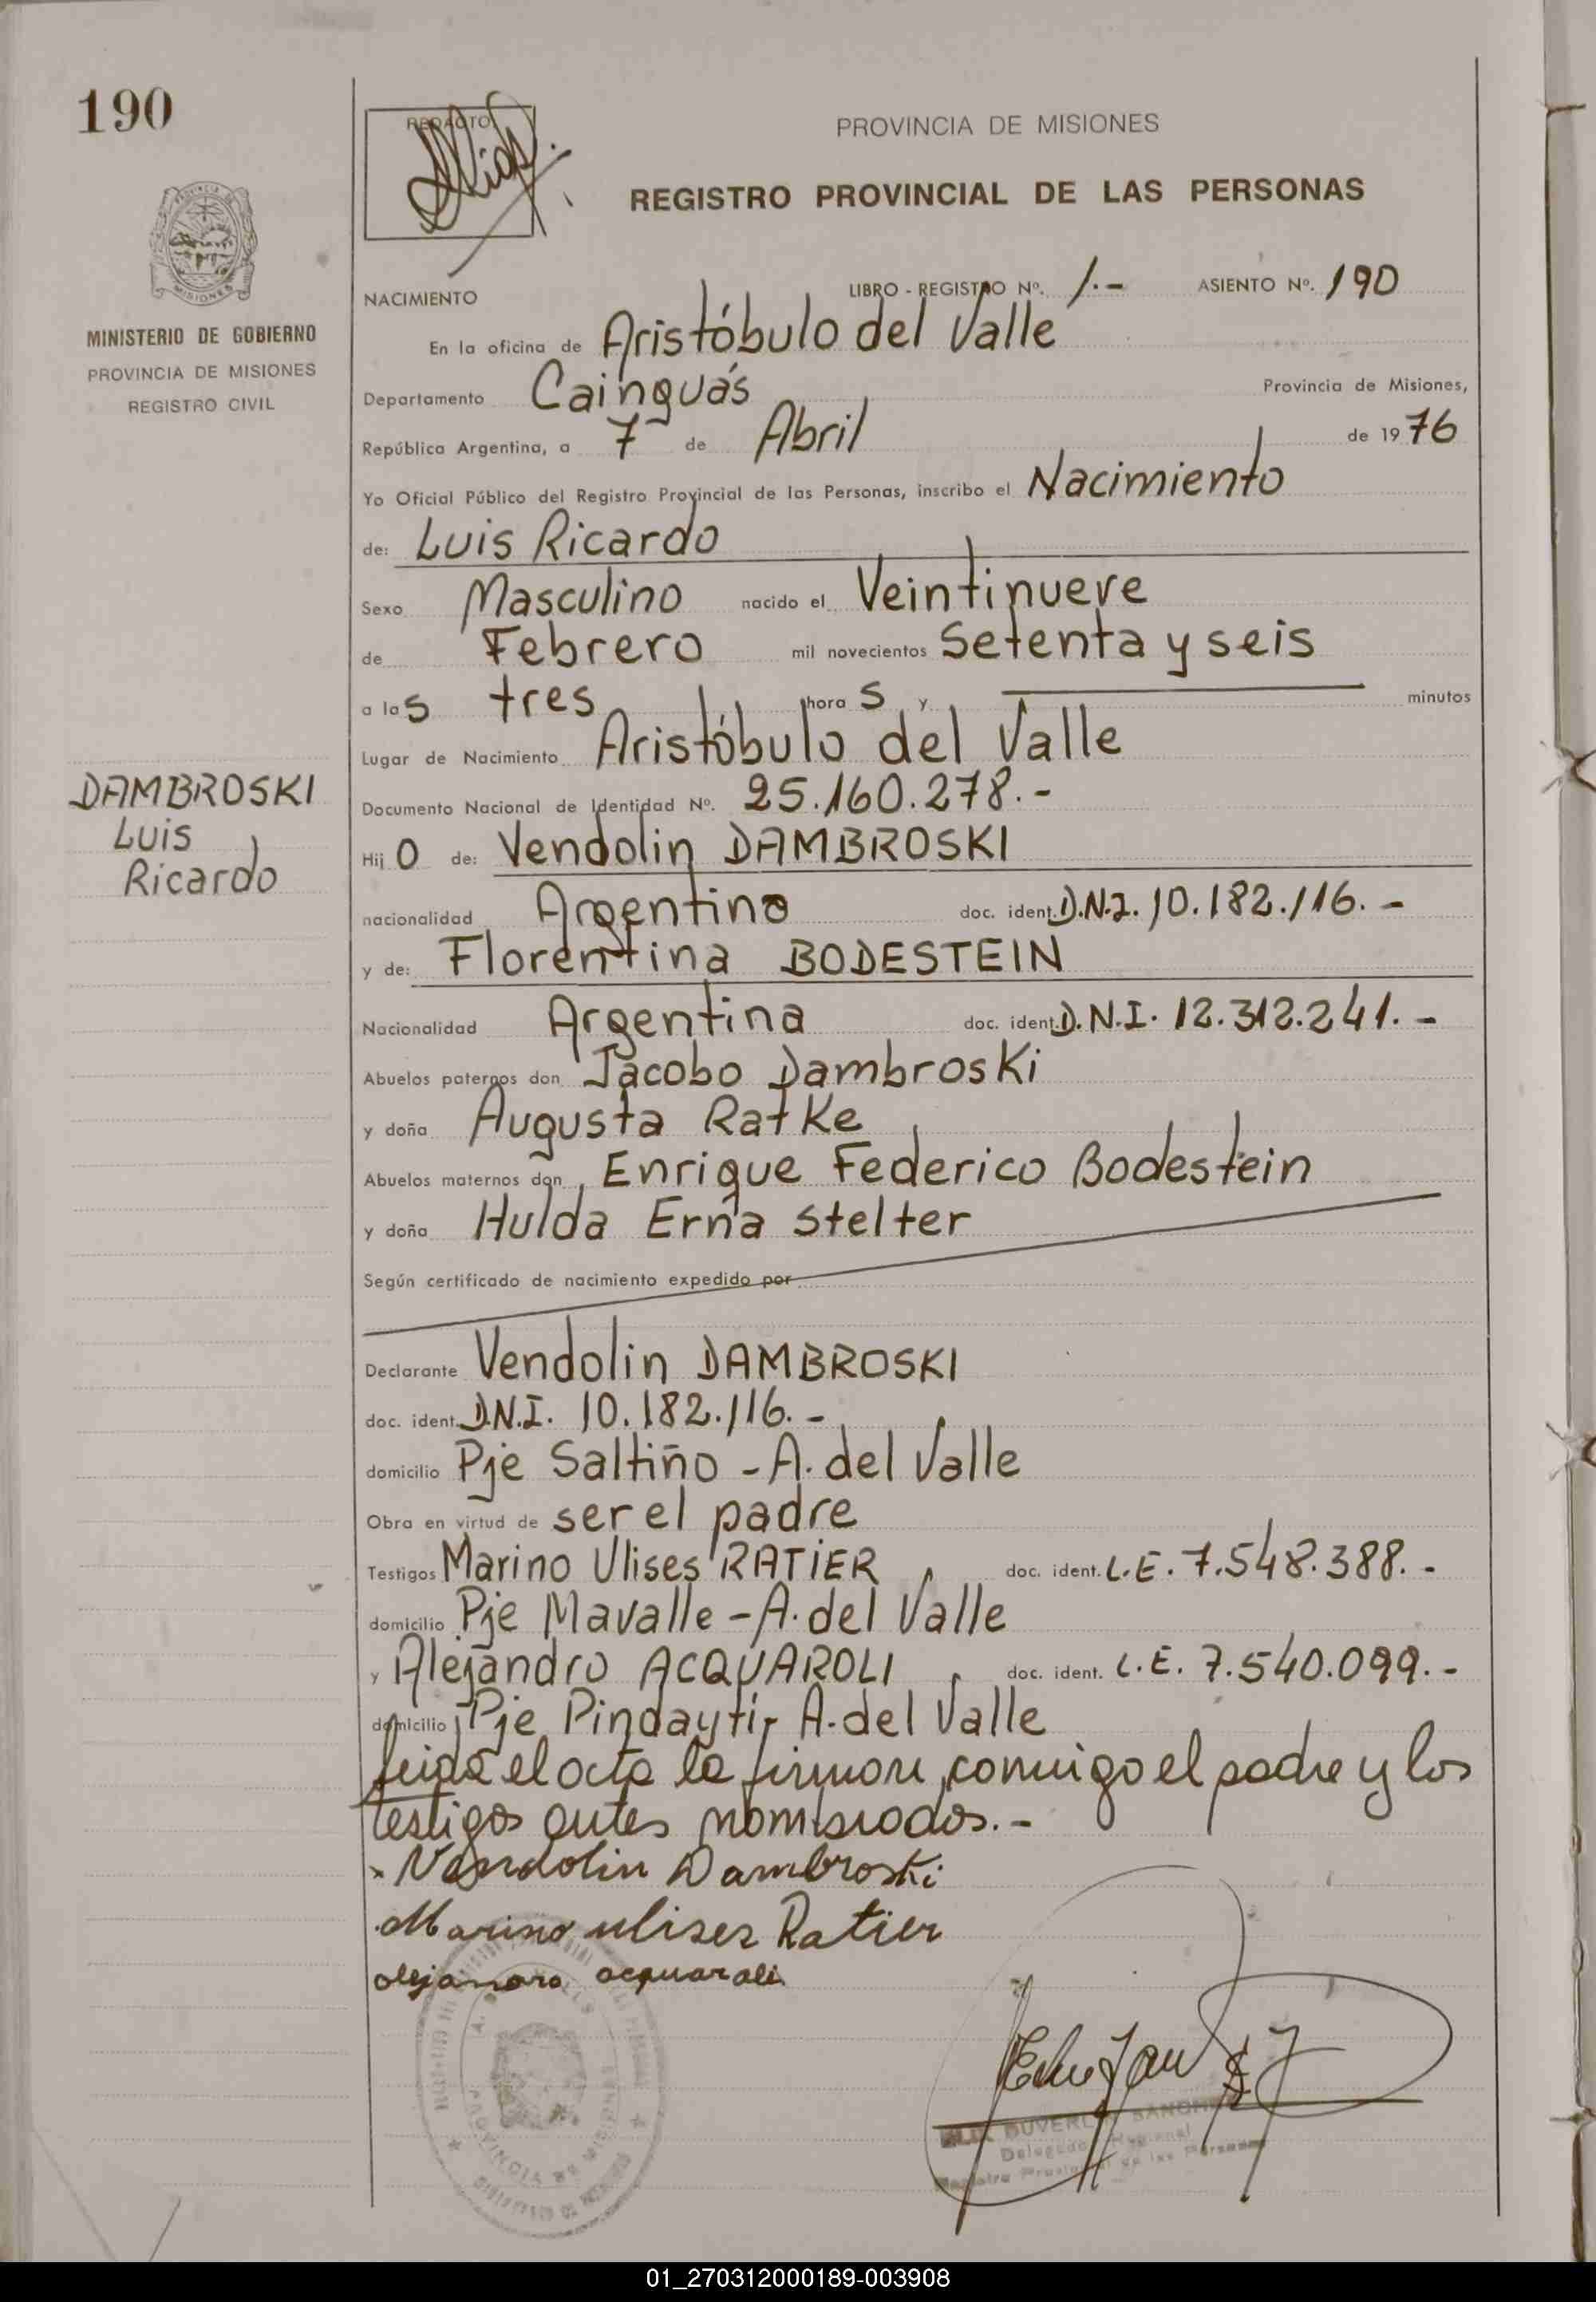 190
REDACTO
PROVINCIA DE MISIONES
REGISTRO PROVINCIAL DE LAS PERSONAS
MISIONES
MINISTERIO DE GOBIERNO
PROVINCIA DE MISIONES
REGISTRO CIVIL
NACIMIENTO LIBRO - REGISTRO Nº. 1.- ASIENTO Nº. 190
En la oficina de Aristóbulo del Valle
Departamento Cainguás Provincia de Misiones,
República Argentina, a 7 de Abril de 1976
Yo Oficial Público del Registro Provincial de las Personas, inscribo el Nacimiento
de: Luis Ricardo
Sexo Masculino nacido el Veintinueve
de Febrero mil novecientos Setenta y seis
a las tres horas y minutos
Lugar de Nacimiento Aristóbulo del Valle
DAMBROSKI
Luis
Ricardo
Documento Nacional de Identidad Nº. 25.160.278.-
Hijo de: Vendolin DAMBROSKI
nacionalidad Argentino doc. ident. D.N.I. 10.182.116.-
y de: Florentina BODESTEIN
Nacionalidad Argentina doc. ident. D.N.I. 12.312.241.-
Abuelos paternos don Jacobo Dambroski
y doña Augusta Ratke
Abuelos maternos don Enrique Federico Bodestein
y doña Hulda Erna Stelter
Según certificado de nacimiento expedido por
Declarante Vendolin DAMBROSKI
doc. ident. D.N.I. 10.182.116.-
domicilio Pje Saltiño - A. del Valle
Obra en virtud de ser el padre
Testigos Marino Ulises RATIER doc. ident. L.E. 7.548.388.-
domicilio Pje Mavalle - A. del Valle
y Alejandro ACQUAROLI doc. ident. L.E. 7.540.099.-
domicilio Pje Pindaytí- A. del Valle
Leida el acta la firman conmigo el padre y los
testigos antes nombrados.-
x Vendolin Dambroski
Marino ulises Ratier
alejandro acquaroli
PROVINCIA DE MISIONES
Delegado Regional
Registro Provincial de las Personas
01_270312000189-003908